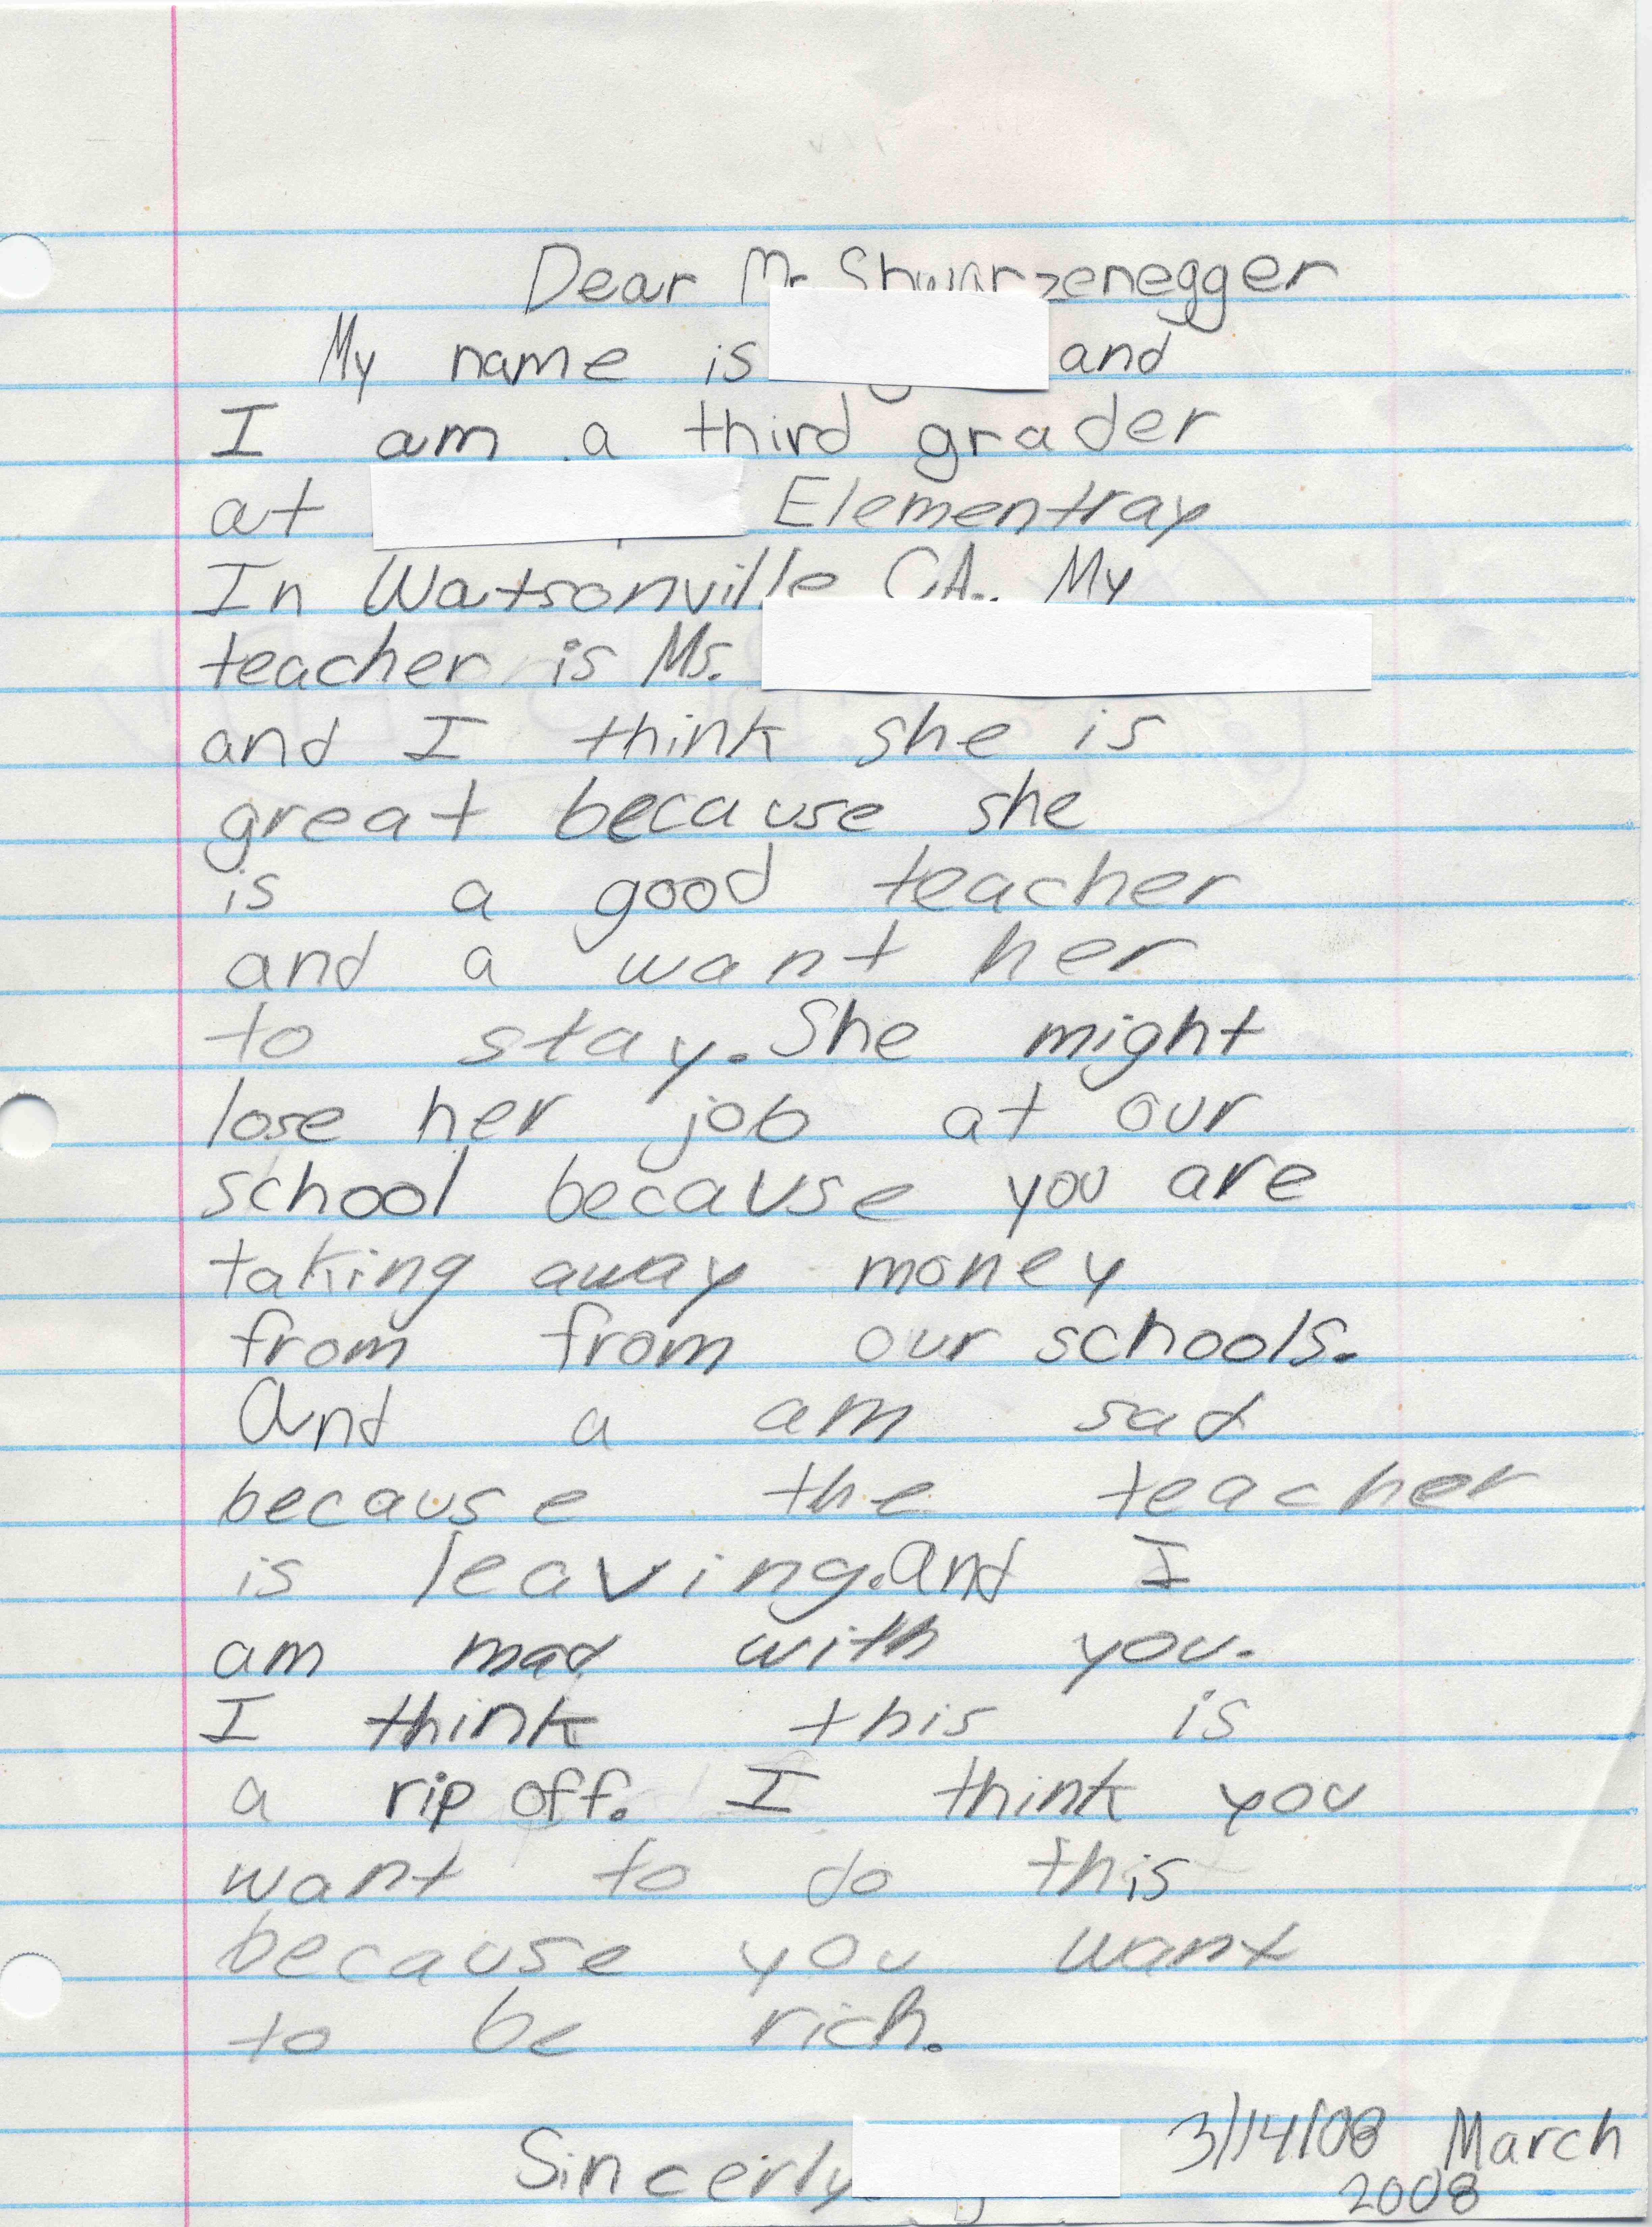 Dear Mr Shwarzenegger
My name is and
I am a third grader
at Elementray
In Watsonville CA.. My
teacher is Ms.
and I think she is
great because she
is a good teacher
and a want her
to stay. She might
lose her job at our
school because you are
taking away money
from from our schools.
And a am sad
because the teacher
is leaving. And I
am mad with you.
I think this is
a rip off. I think you
want to do this
because you want
to be rich.
Sincerly
3/14/08 March
2008